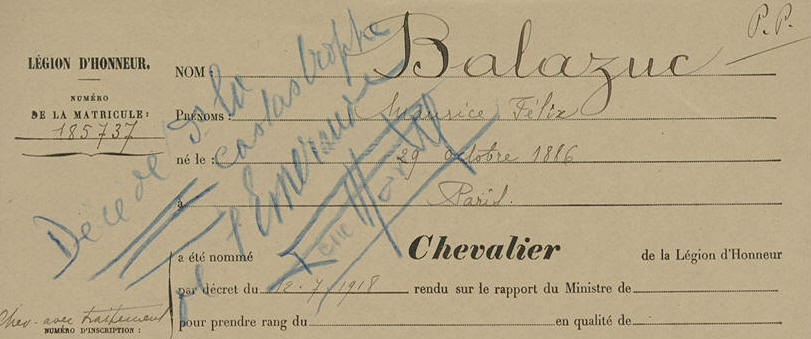 P.P.
LÉGION D'HONNEUR.
NUMÉRO
DE LA MATRICULE:
185737
NOM: Balazuc
PRÉNOMS: Maurice Félix
né le: 29 octobre 1886
à Paris.
a été nommé Chevalier de la Légion d'Honneur
par décret du 12.7.1918 rendu sur le rapport du Ministre de
pour prendre rang du en qualité de
Chev. avec traitement
NUMÉRO D'INSCRIPTION:
Décédé ds la
Catastrophe
de l'Emeraude